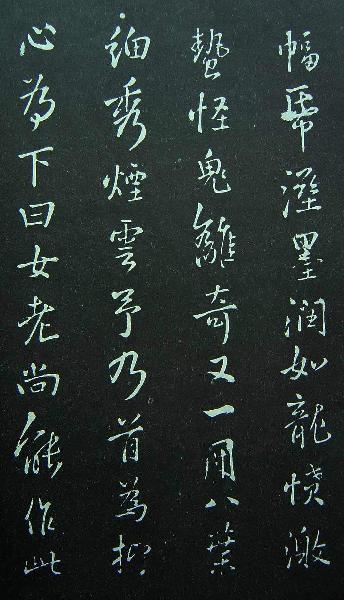 幅帋溼墨潤如龍憤激
蟄怪鬼離奇又一用八葉
細秀煙雲予乃首為抑
心為下曰女老尚能作此